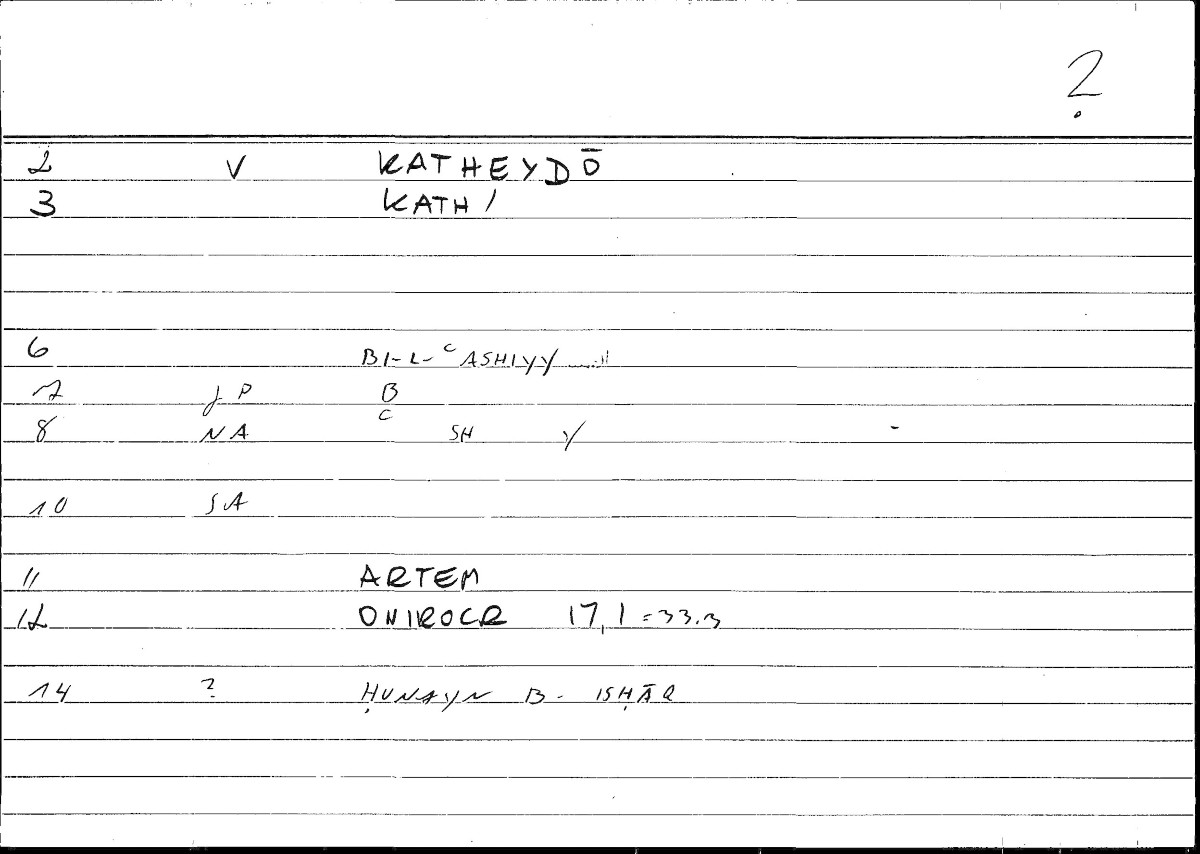 ?
2 V KATHEYDŌ
3 KATH /
6 BI-L-ᶜASHIYY
7 JP B
8 NA ᶜ SH Y
10 SA
11 ARTEM
12 ONIROCR 17,1 = 33.3
14 ? ḤUNAYN B- ISḤĀQ